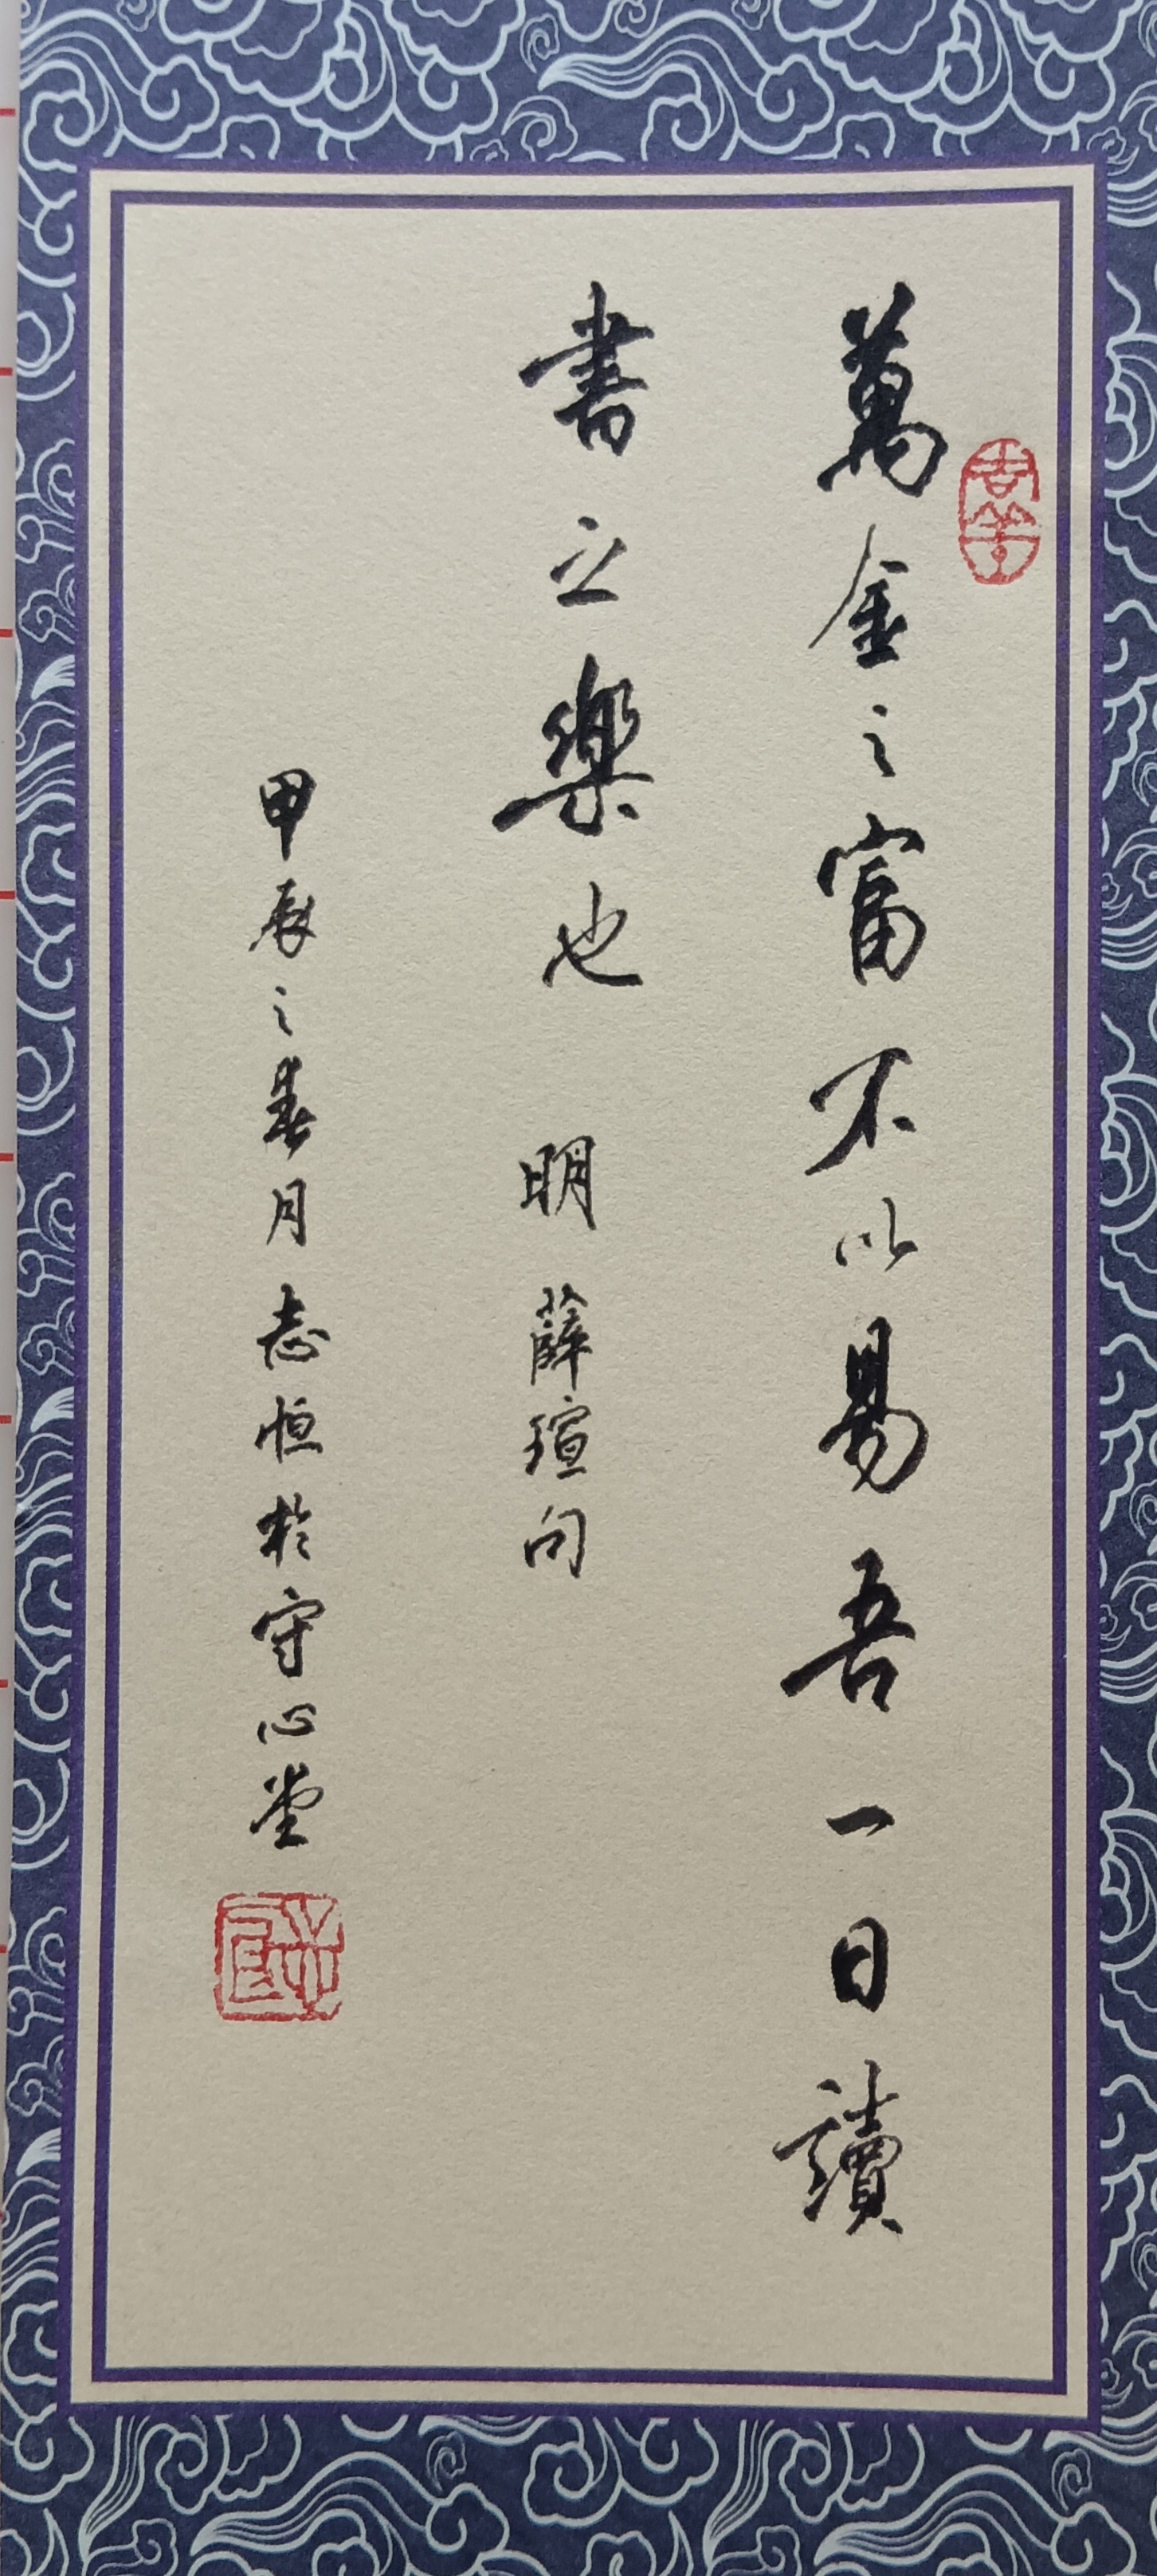 萬金之富不以易吾一日讀
書之樂也 明 薛瑄句
甲辰之春月志恒於守心堂